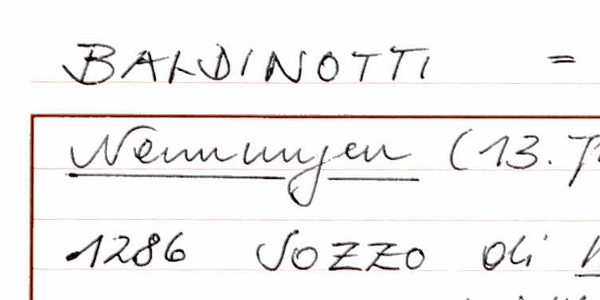 BALDINOTTI =
Nennungen (13.
1286 Sozzo di